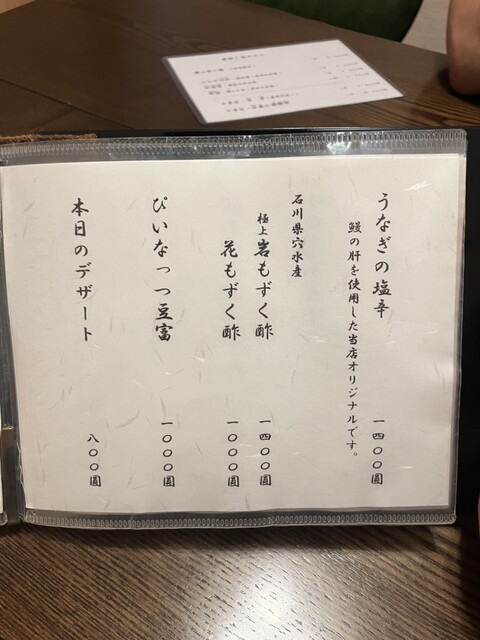 うなぎの塩辛 一四〇〇圓
鰻の肝を使用した当店オリジナルです。
石川県穴水産
極上 岩もずく酢 一四〇〇圓
花もずく酢 一〇〇〇圓
ぴいなっつ豆富 一〇〇〇圓
本日のデザート 八〇〇圓